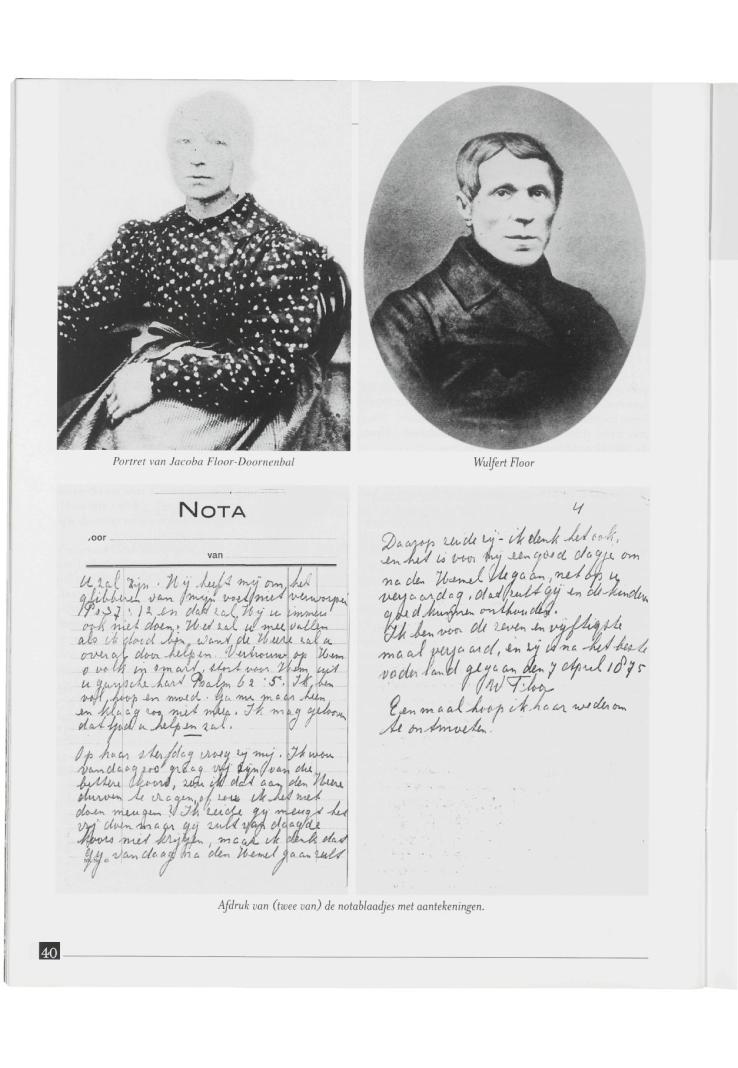 Portret van Jacoba Floor-Doornenbal
Wulfert Floor
NOTA
.oor
van
U zal zijn. Hij heeft mij om het
glibberen van mijn voet niet verworpen
Ps 37:12 en dat zal Hij u immers
ook niet doen. Het zal u mee vallen
als ik dood ben, want de Heere zal u
overal door helpen. Vertrouw op Hem
o volk in smart, stort voor Hem uit
u gansche hart Psalm 62:5. Ik ben
vol hoop en moed. Ga nu maar heen
en klaag zoo niet meer. Ik mag geloven
dat God u helpen zal.
Op haar sterfdag vroeg zij mij. Ik wou
vandaag zoo graag vrij zijn van die
bittere koors, zou ik dat aan den Heere
durven te vragen, of zou ik het niet
doen meugen? Ik zeide gij meugt het
vrij doen maar gij zult vandaag de
koors niet krijgen, maar ik denk dat
gij vandaag na den Hemel gaan zult
4
Daarop zeide zij - ik denk het ook,
en het is voor mij een goed dagje om
na den Hemel te gaan, net op u
verjaardag, dat zult gij en de kinders
goed kunnen onthouden.
Ik ben voor de zeven en vijftigste
maal verjaard, en zij is na het beste
vaderland gegaan den 7 April 1875
W Floor
Eenmaal hoop ik haar wederom
te ontmoeten.
Afdruk van (twee van) de notablaadjes met aantekeningen.
40